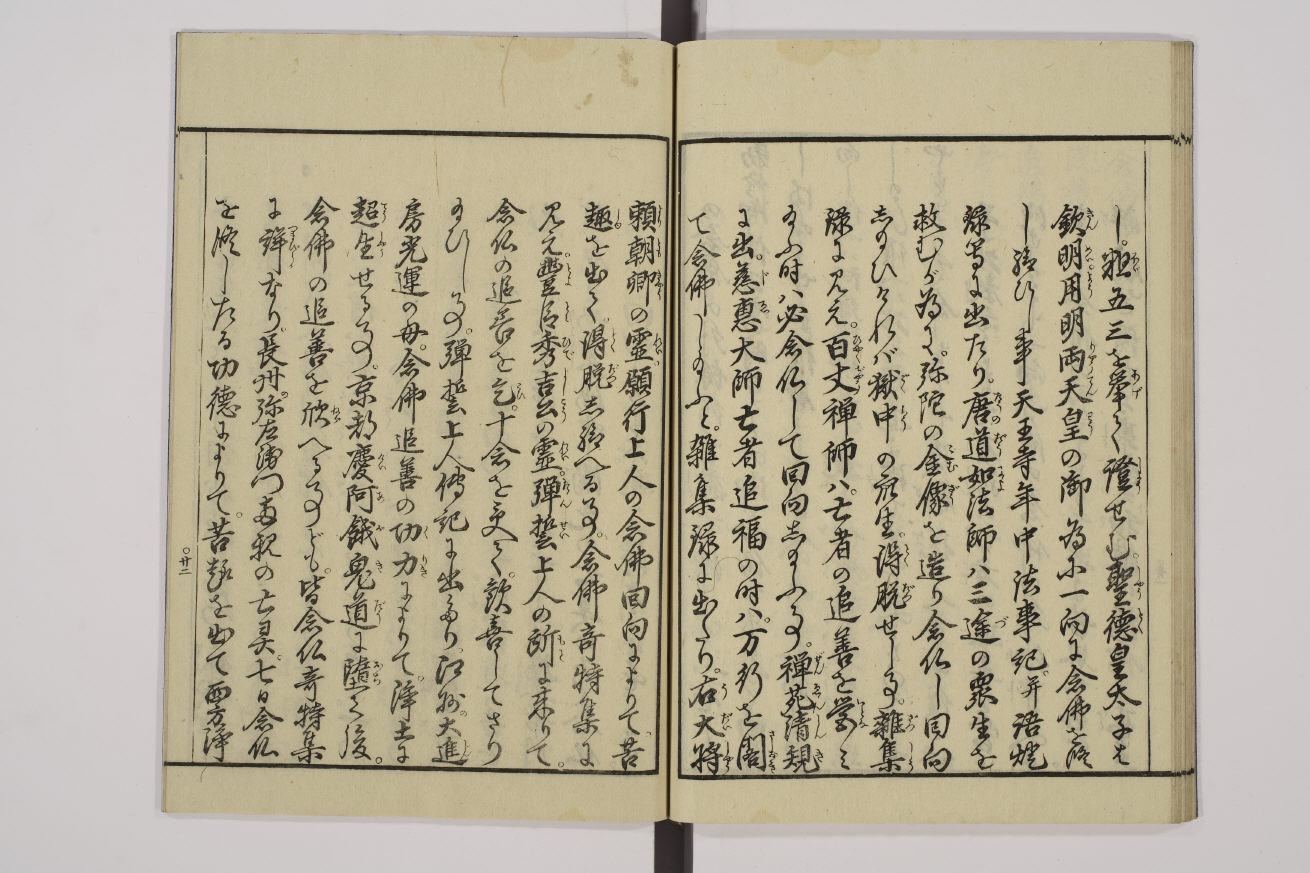 し。粗五三を挙て證せむ。聖徳皇太子は
欽明用明両天皇の御為に一向に念佛を修
し給ひし事天王寺年中法事記。并諸
録等に出たり。唐道如法師ハ三途の衆生を
救むが為に。弥陀の金像を造り念仏し回向
志給ひけれバ獄中の衆生。得脱せし事。雑集
録に見え。百丈禅師ハ。亡者の追善を営ミ
給ふ時ハ必念仏して回向し給ふ事。禅苑清規
に出。慈恵大師亡者追福の時ハ。万行を閣
て念佛し給ふと。雜集録に出たり。右大将
頼朝卿の靈。願行上人の念佛回向によりて。苦
趣を出て。得脱し給へる事。念佛奇特集に
見え。豊臣秀吉公の靈。弾誓上人の所に来りて。
念仏の追善を乞。十念を受て。歓喜してさり
給ひし事。弾誓上人傳記に出たり。江州大進
房光運の母。念佛追善の功力によりて。浄土に
超生せる事。京都慶阿餓鬼道に墮て後。
念佛の追善を欣へる事ども。皆念仏奇特集
に詳なり。長州。弥左衛門両親の亡灵。七日念仏
を修したる功徳によりて。苦趣を出て西方浄
〇廿二